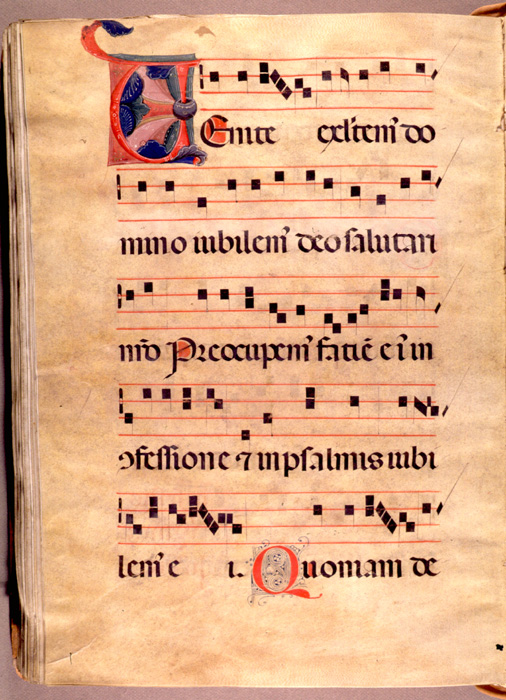 VEnite exultem᷒ do
mino iubilem᷒ deo salutari
nr̄o Preocupem᷒ faciē eı̄ in
ↄfessione ⁊ in psalmis iubi
lem᷒ e i. Quoniam de